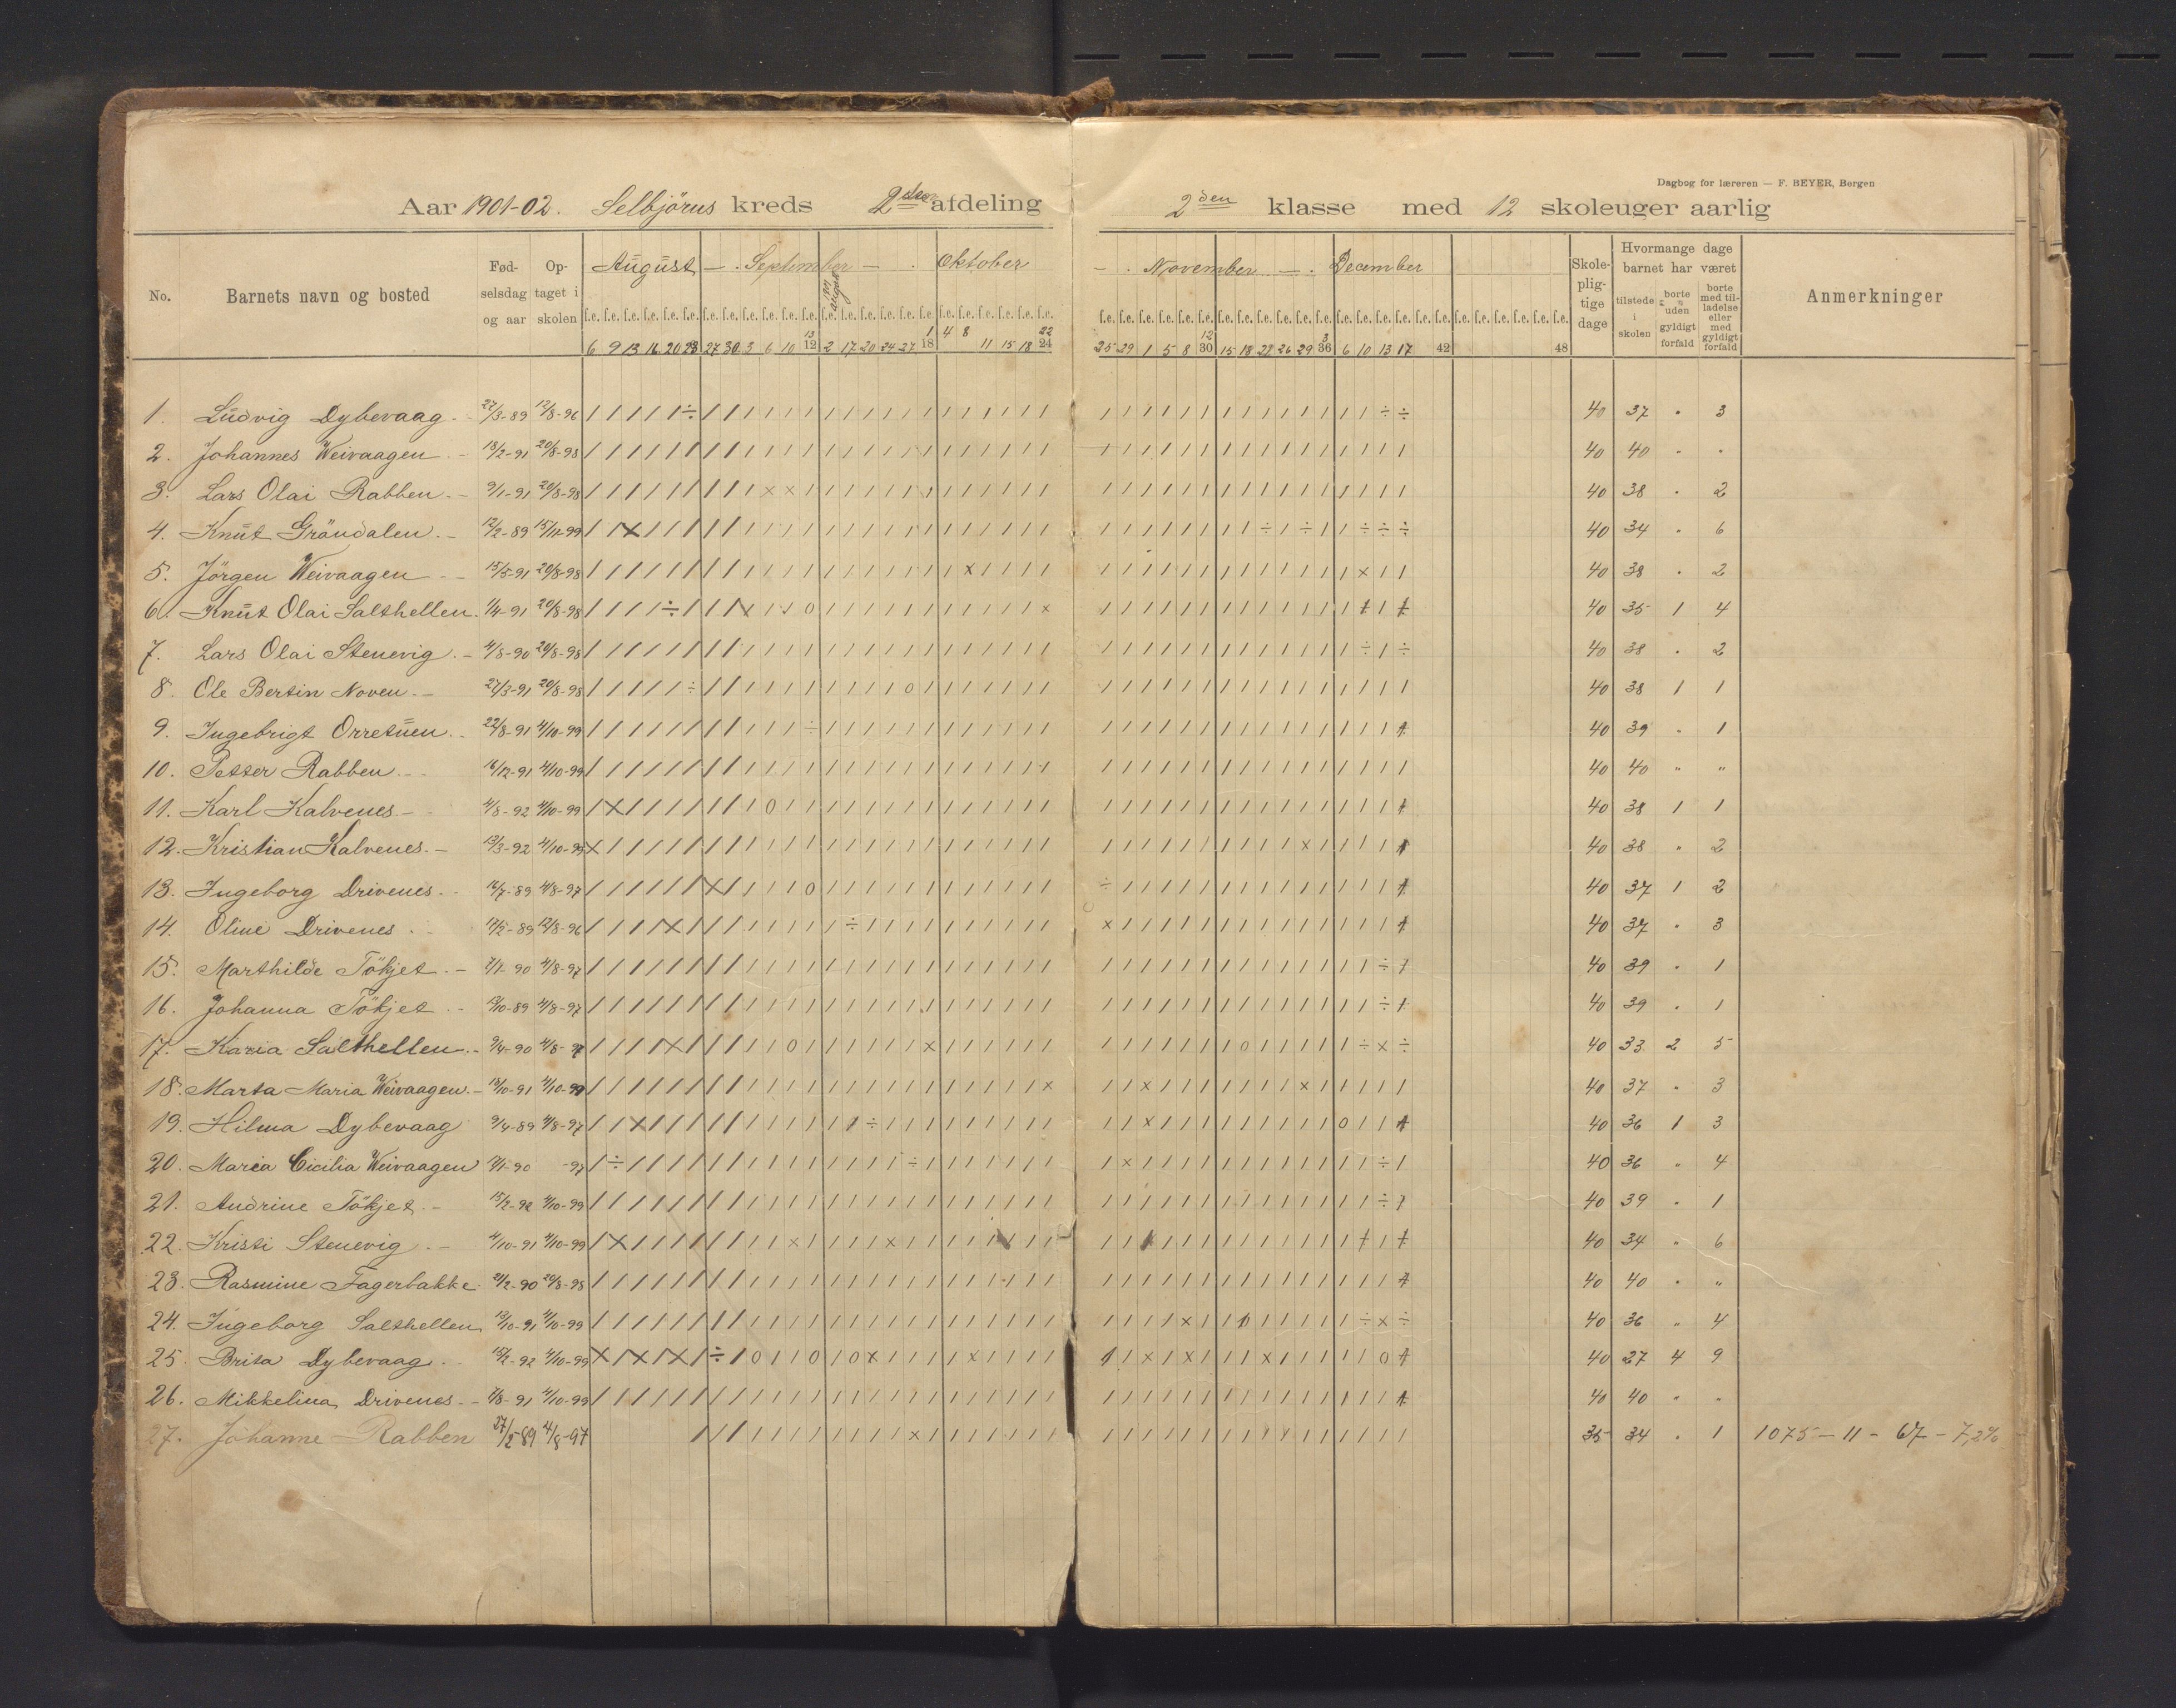 Dagbog for læreren — F. BEYER, Bergen
Aar 1901-02. Selbjörns kreds 2den afdeling 2den klasse med 12 skoleuger aarlig
No. Barnets navn og bosted Fødselsdag og aar Optaget i skolen August — September — Oktober — November — December Skolepligtige dage Hvormange dage barnet har været tilstede i skolen borte uden gyldigt forfald borte med tilladelse eller med gyldigt forfald Anmerkninger
6 9 13 16 20 23 27 30 3 6 10 13 2 17 20 24 27 1 4 8 11 15 18 22 25 29 1 5 8 12 15 18 22 26 29 3 6 10 13 17
12 18 24 30 36 42 48
1. Ludvig Dybevaag 27/3-89 12/8-96 40 37 " 3
2. Johannes Weivaagen 18/2-91 20/8-98 40 40 " "
3. Lars Olai Rabben 9/1-91 20/8-98 40 38 " 2
4. Knut Gröndalen 12/2-89 15/11-99 40 34 " 6
5. Jörgen Weivaagen 15/5-91 20/8-98 40 38 " 2
6. Knut Olai Salthellen 1/4-91 20/8-98 40 35 1 4
7. Lars Olai Stenevig 4/8-90 20/8-98 40 38 " 2
8. Ole Bertin Noven 27/3-91 20/8-98 40 38 1 1
9. Ingebrigt Orretuen 22/8-91 4/10-99 40 39 " 1
10. Petter Rabben 16/12-91 4/10-99 40 40 " "
11. Karl Kalvenes 4/8-92 4/10-99 40 38 1 1
12. Kristian Kalvenes 13/3-92 4/10-99 40 38 " 2
13. Ingeborg Drivenes 16/7-89 4/8-97 40 37 1 2
14. Oline Drivenes 12/8-96 40 37 " 3
15. Marthilde Tökjet 4/8-97 40 39 " 1
16. Johanna Tökjet 4/8-97 40 39 " 1
17. Karia Salthellen 9/4-90 4/8-97 40 33 2 5
18. Marta Maria Weivaagen 4/10-99 40 37 " 3
19. Hilma Dybevaag 9/4-89 4/8-97 40 36 1 3
20. Maria Cicilia Weivaagen -97 40 36 " 4
21. Andrine Tökjet 15/2-92 4/10-99 40 39 " 1
22. Kristi Stenevig 4/10-91 4/10-99 40 34 " 6
23. Rasmine Fagerbakke 20/8-98 40 40 " "
24. Ingeborg Salthellen 12/10-91 4/10-99 40 36 " 4
25. Brita Dybevaag 4/10-99 40 27 4 9
26. Mikkelina Drivenes 4/10-99 40 40 " "
27. Johanne Rabben 27/2-89 4/8-97 35 34 " 1 1075 — 11 — 67 — 7,2%